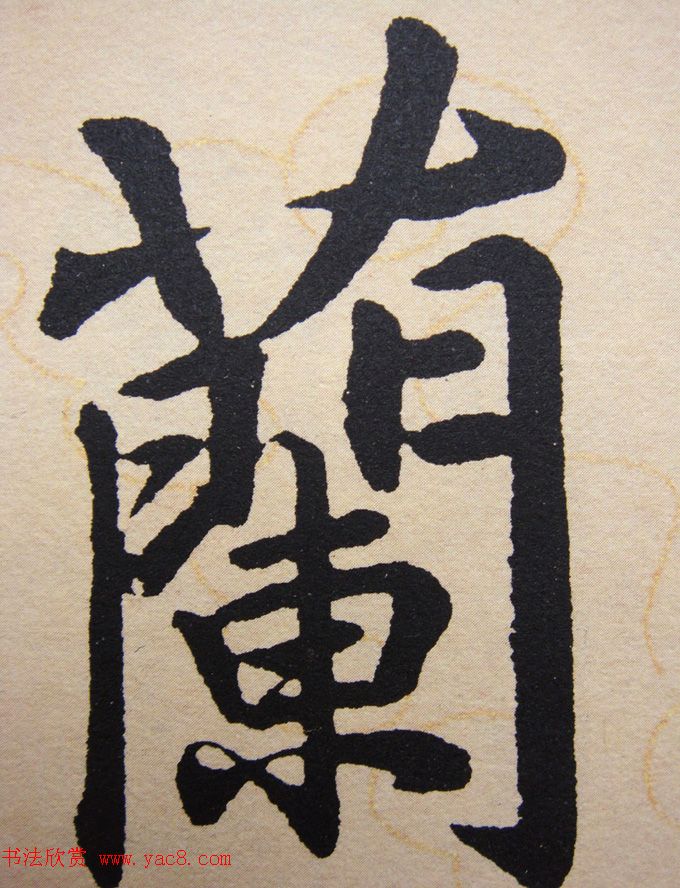 蘭
书法欣赏 www.yac8.com